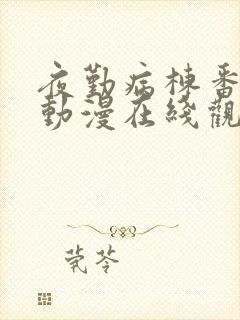 夜勤病棟番
動漫在綫觀
茕苓